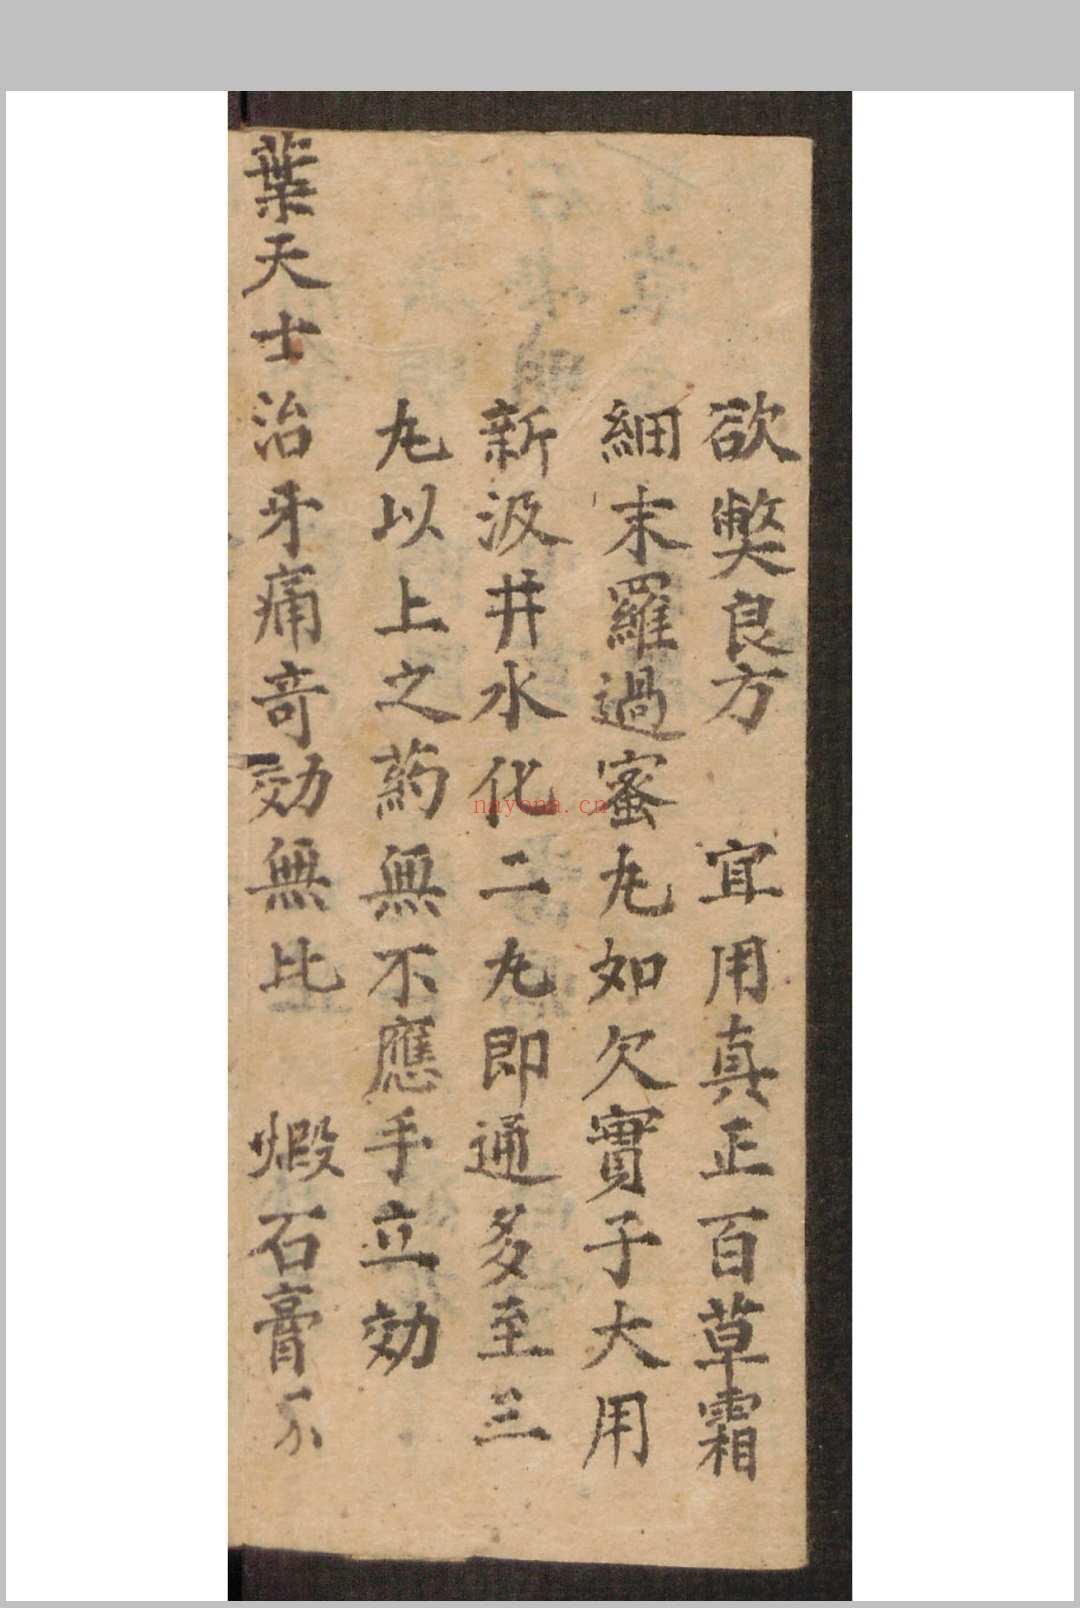 欲獘良方　宜用真正百草霜
細末羅過蜜丸如欠實子大用
新汲井水化二丸即通多至三
丸以上之葯無不應手立効
葉天士治牙痛奇効無比　煆石膏不
nayona.cn